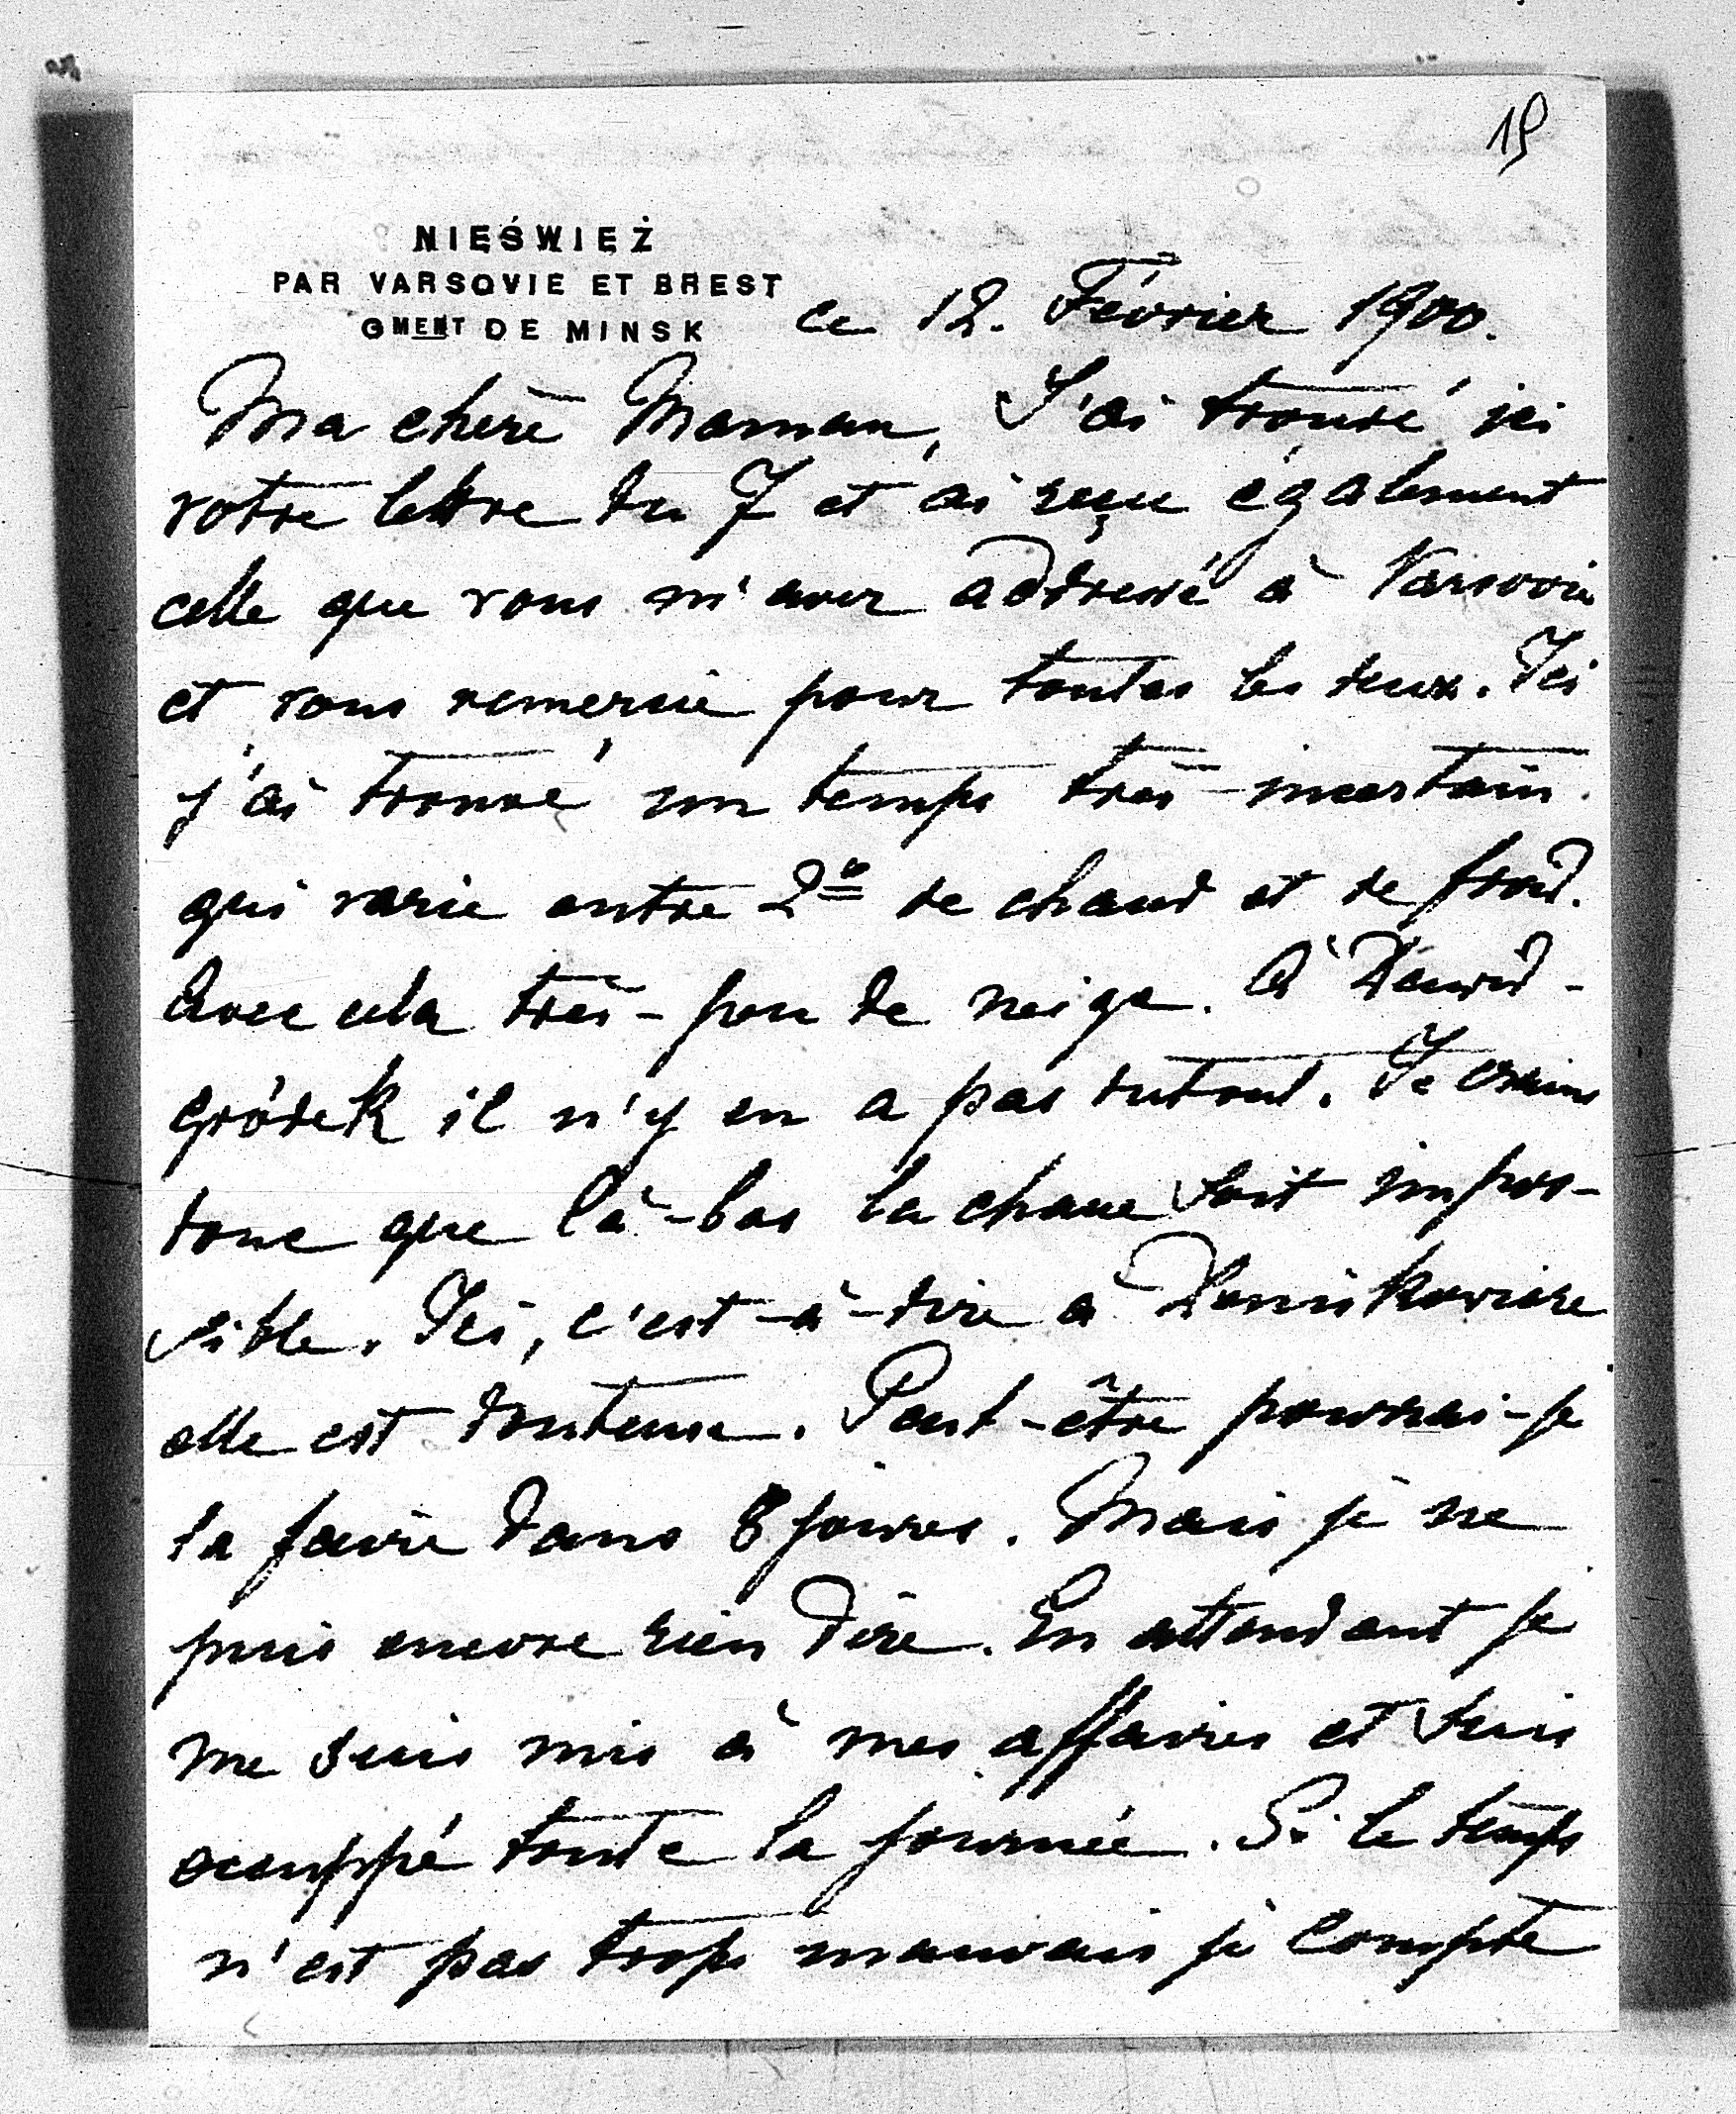 19
NIEŚWIEŻ
PAR VARSOVIE ET BREST
GMENT DE MINSK
ce 12. Février 1900.
Ma chère Maman, J'ai trouvé ici
votre lettre du 7 et ai reçu également
celle que vous m'avez addressé à Varsovie
et vous remercie pour toutes les deux. Ici
j'ai trouvé un temps très-incertain
qui varie entre 2° de chaud et de froid.
Avec cela très-peu de neige. À Dawid-
gródek il n'y en a pas dutout. Je crains
donc que là-bas la chasse soit impos-
sible. Ici, c'est-à-dire à
elle est douteuse. Peut-être pourrai-je
la faire dans 8 jours. Mais je ne
puis encore rien dire. En attendant je
me suis mis à mes affaires et suis
occuppé toute la journée. Si le temps
n'est pas trop mauvais je compte